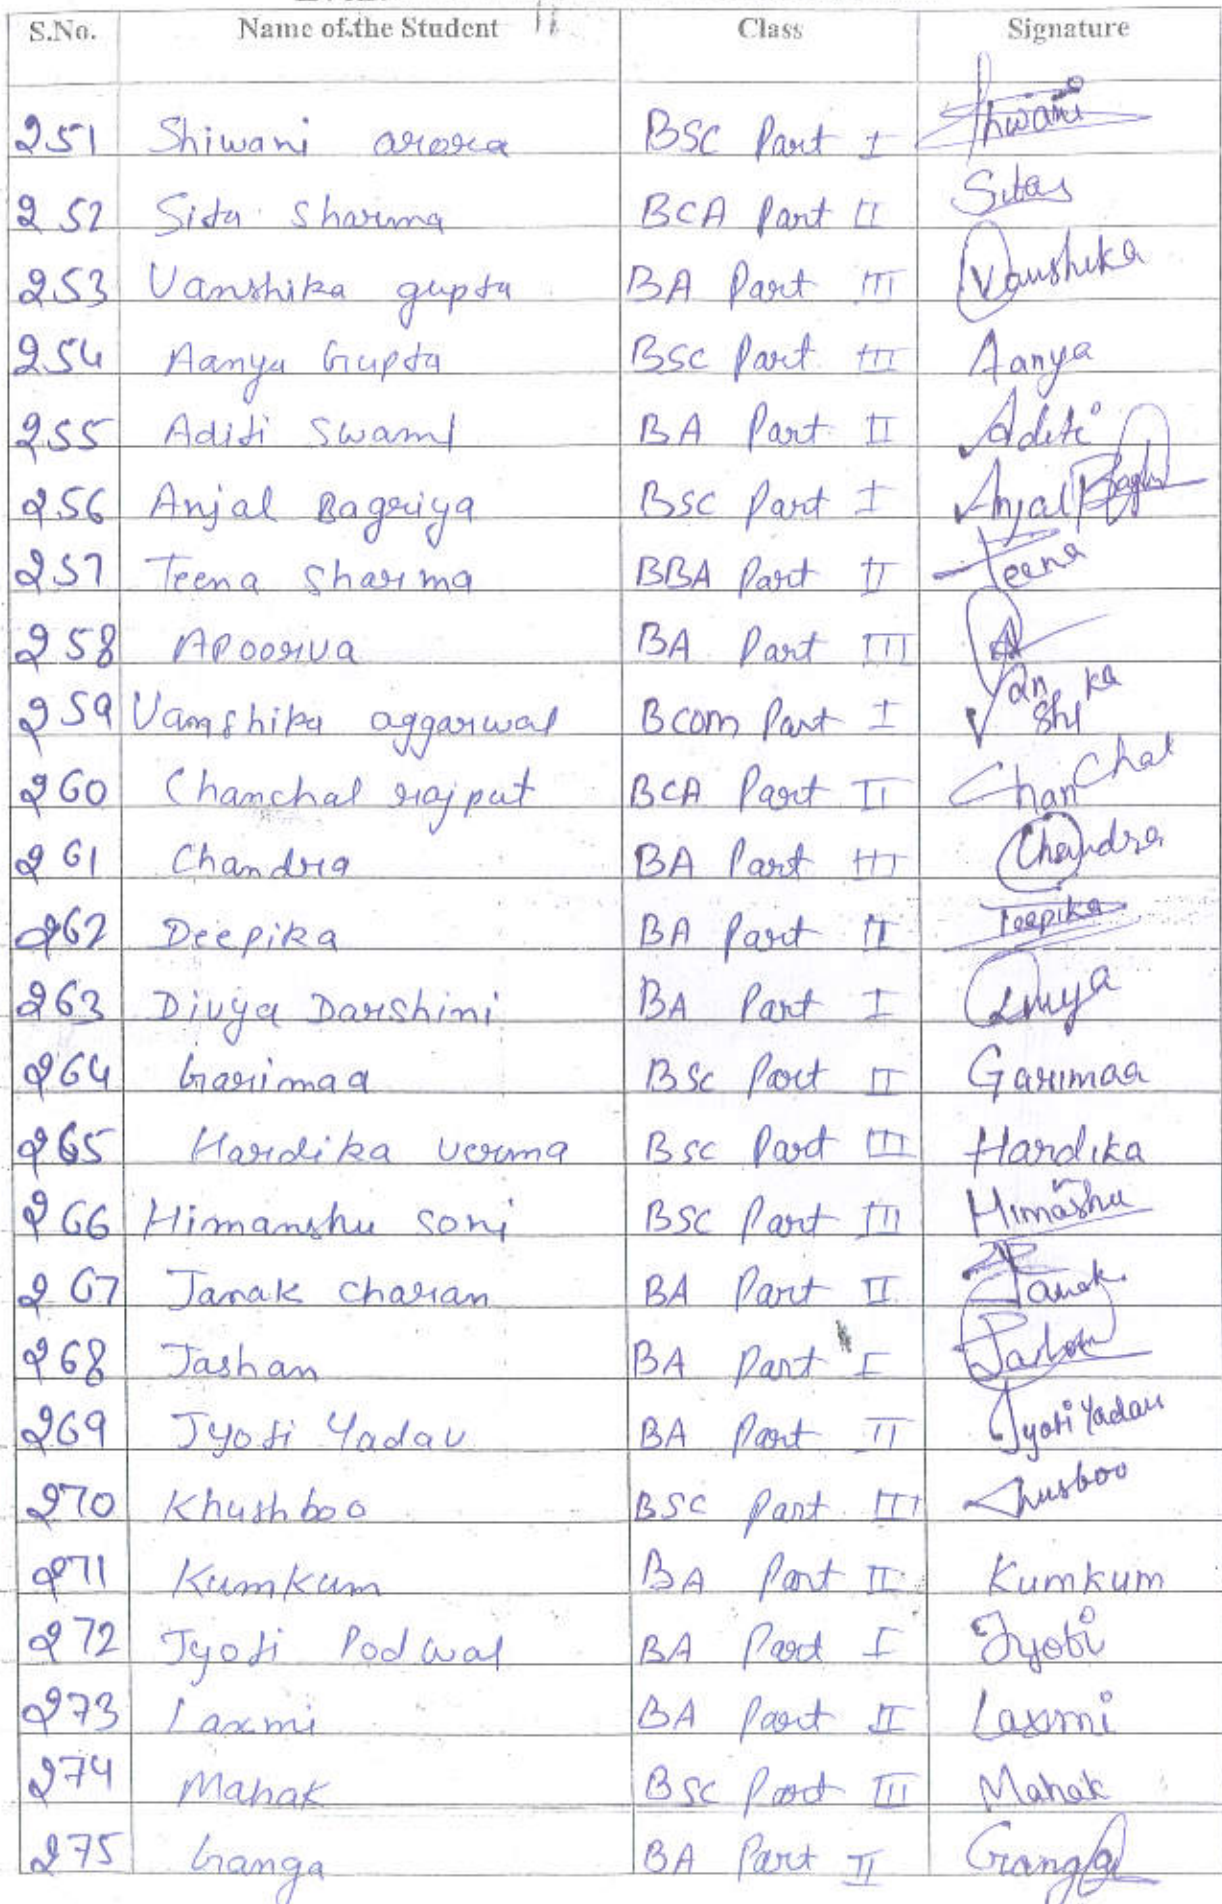 S.No. Name of the Student Class Signature
251 Shiwani arora BSC Part I Shwani
252 Sita Sharma BCA Part II Sitas
253 Vanshika gupta BA Part III Vanshika
254 Aanya Gupta BSC Part III Aanya
255 Aditi Swami BA Part II Aditi
256 Anjal Bagriya BSC Part I Anjal
257 Teena Sharma BBA Part II Teena
258 Apoorva BA Part III A
259 Vanshika aggarwal Bcom Part I Vanshika
260 Chanchal rajput BCA Part II Chanchal
261 Chandra BA Part III Chandra
262 Deepika BA Part II Deepika
263 Divya Darshini BA Part I Divya
264 Garimaa BSc Part II Garimaa
265 Hardika verma BSC Part III Hardika
266 Himanshu soni BSC Part III Himashu
267 Janak charan BA Part II Janak
268 Jashan BA Part I Jashan
269 Jyoti Yadav BA Part II Jyoti Yadav
270 Khushboo BSC Part III Khusboo
271 Kumkum BA Part II Kumkum
272 Jyoti Podwal BA Part I Jyoti
273 Laxmi BA Part II Laxmi
274 Mahak BSC Part III Mahak
275 Ganga BA Part II Ganga